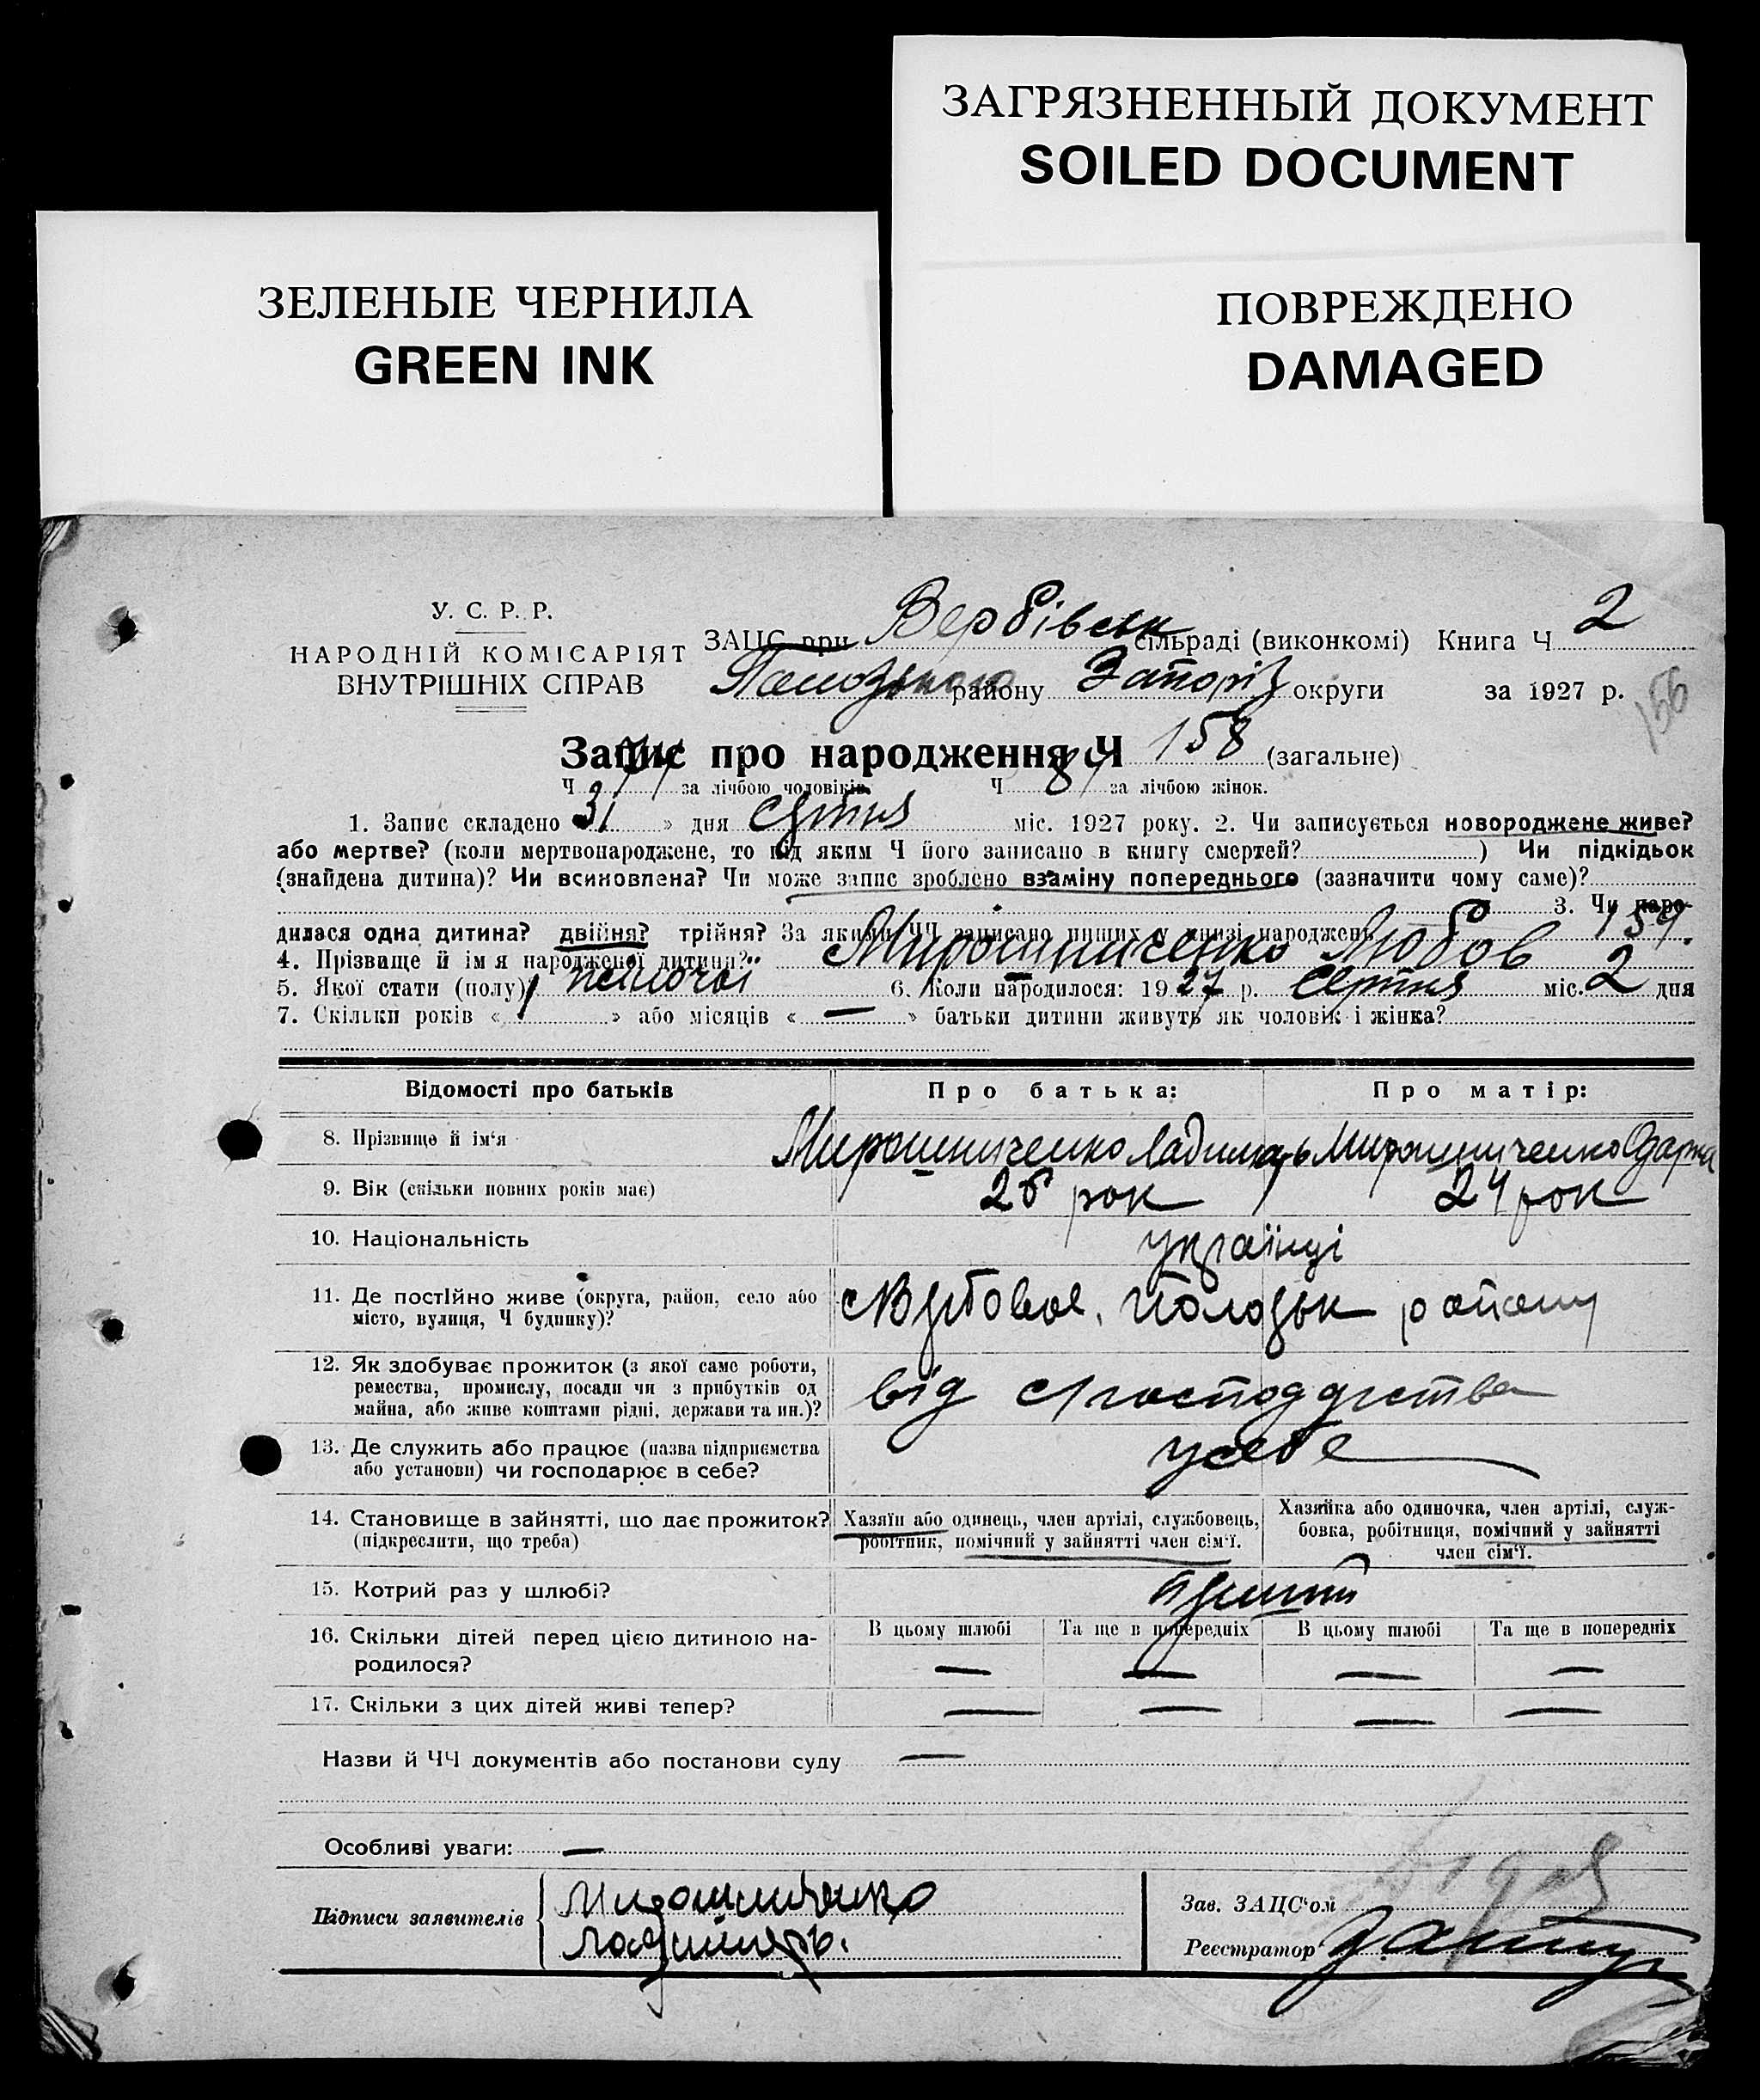 ЗАГРЯЗНЕННЫЙ ДОКУМЕНТ
SOILED DOCUMENT
ЗЕЛЕНЫЕ ЧЕРНИЛА
GREEN INK
ПОВРЕЖДЕНО
DAMAGED
У. С. Р. Р.
НАРОДНІЙ КОМІСАРІЯТ
ВНУТРІШНІХ СПРАВ
ЗАЦС при Вербівськ сільраді (виконкомі) Книга Ч 2
району Запоріз округи за 1927 р.
156
Запис про народження Ч 158 (загальне)
Ч за лічбою чоловіків Ч 81 за лічбою жінок.
1. Запис складено 31 » дня серпня міс. 1927 року. 2. Чи записується новороджене живе?
або мертве? (коли мертвонароджене, то під яким Ч його записано в книгу смертей? ) Чи підкідьок
(знайдена дитина)? Чи всиновлена? Чи може запис зроблено взаміну попереднього (зазначити чому саме)?
3. Чи наро-
дилася одна дитина? двійня? трійня? За якими ЧЧ записано инших у книзі народжень 159.
4. Прізвище й ім я народженої дитини? Мирошниченко Любов
5. Якої стати (полу) жіночої 6. Коли народилося: 1927 р. серпня міс. 2 дня
7. Скільки років « 1 » або місяців « — » батьки дитини живуть як чоловік і жінка?
Відомості про батьків Про батька: Про матір:
8. Прізвище й ім'я Мирошниченко Ладимирь Мирошниченко Одарка
9. Вік (скільки повних років має) 26 рок 24 рок
10. Національність українці
11. Де постійно живе (округа, район, село або
місто, вулиця, Ч будинку)?
с Вербовое, Пологськ району
12. Як здобуває прожиток (з якої саме роботи,
ремества, промислу, посади чи з прибутків од
майна, або живе коштами рідні, держави та ин.)?
від с господарства
13. Де служить або працює (назва підприємства
або установи) чи господарює в себе?
у себе
14. Становище в зайнятті, що дає прожиток?
(підкреслити, що треба)
Хазяїн або одинець, член артілі, службовець,
робітник, помічний у зайнятті член сім'ї.
Хазяйка або одиночка, член артілі, служ-
бовка, робітниця, помічний у зайнятті
член сім'ї.
15. Котрий раз у шлюбі? перший
16. Скільки дітей перед цією дитиною на-
родилося?
В цьому шлюбі Та ще в попередніх В цьому шлюбі Та ще в попередніх
— — — —
17. Скільки з цих дітей живі тепер? — — — —
Назви й ЧЧ документів або постанови суду —
Особливі уваги: —
Підписи заявителів Мирошниченко
Ладимиръ.
Зав. ЗАЦС'ом
Реєстратор